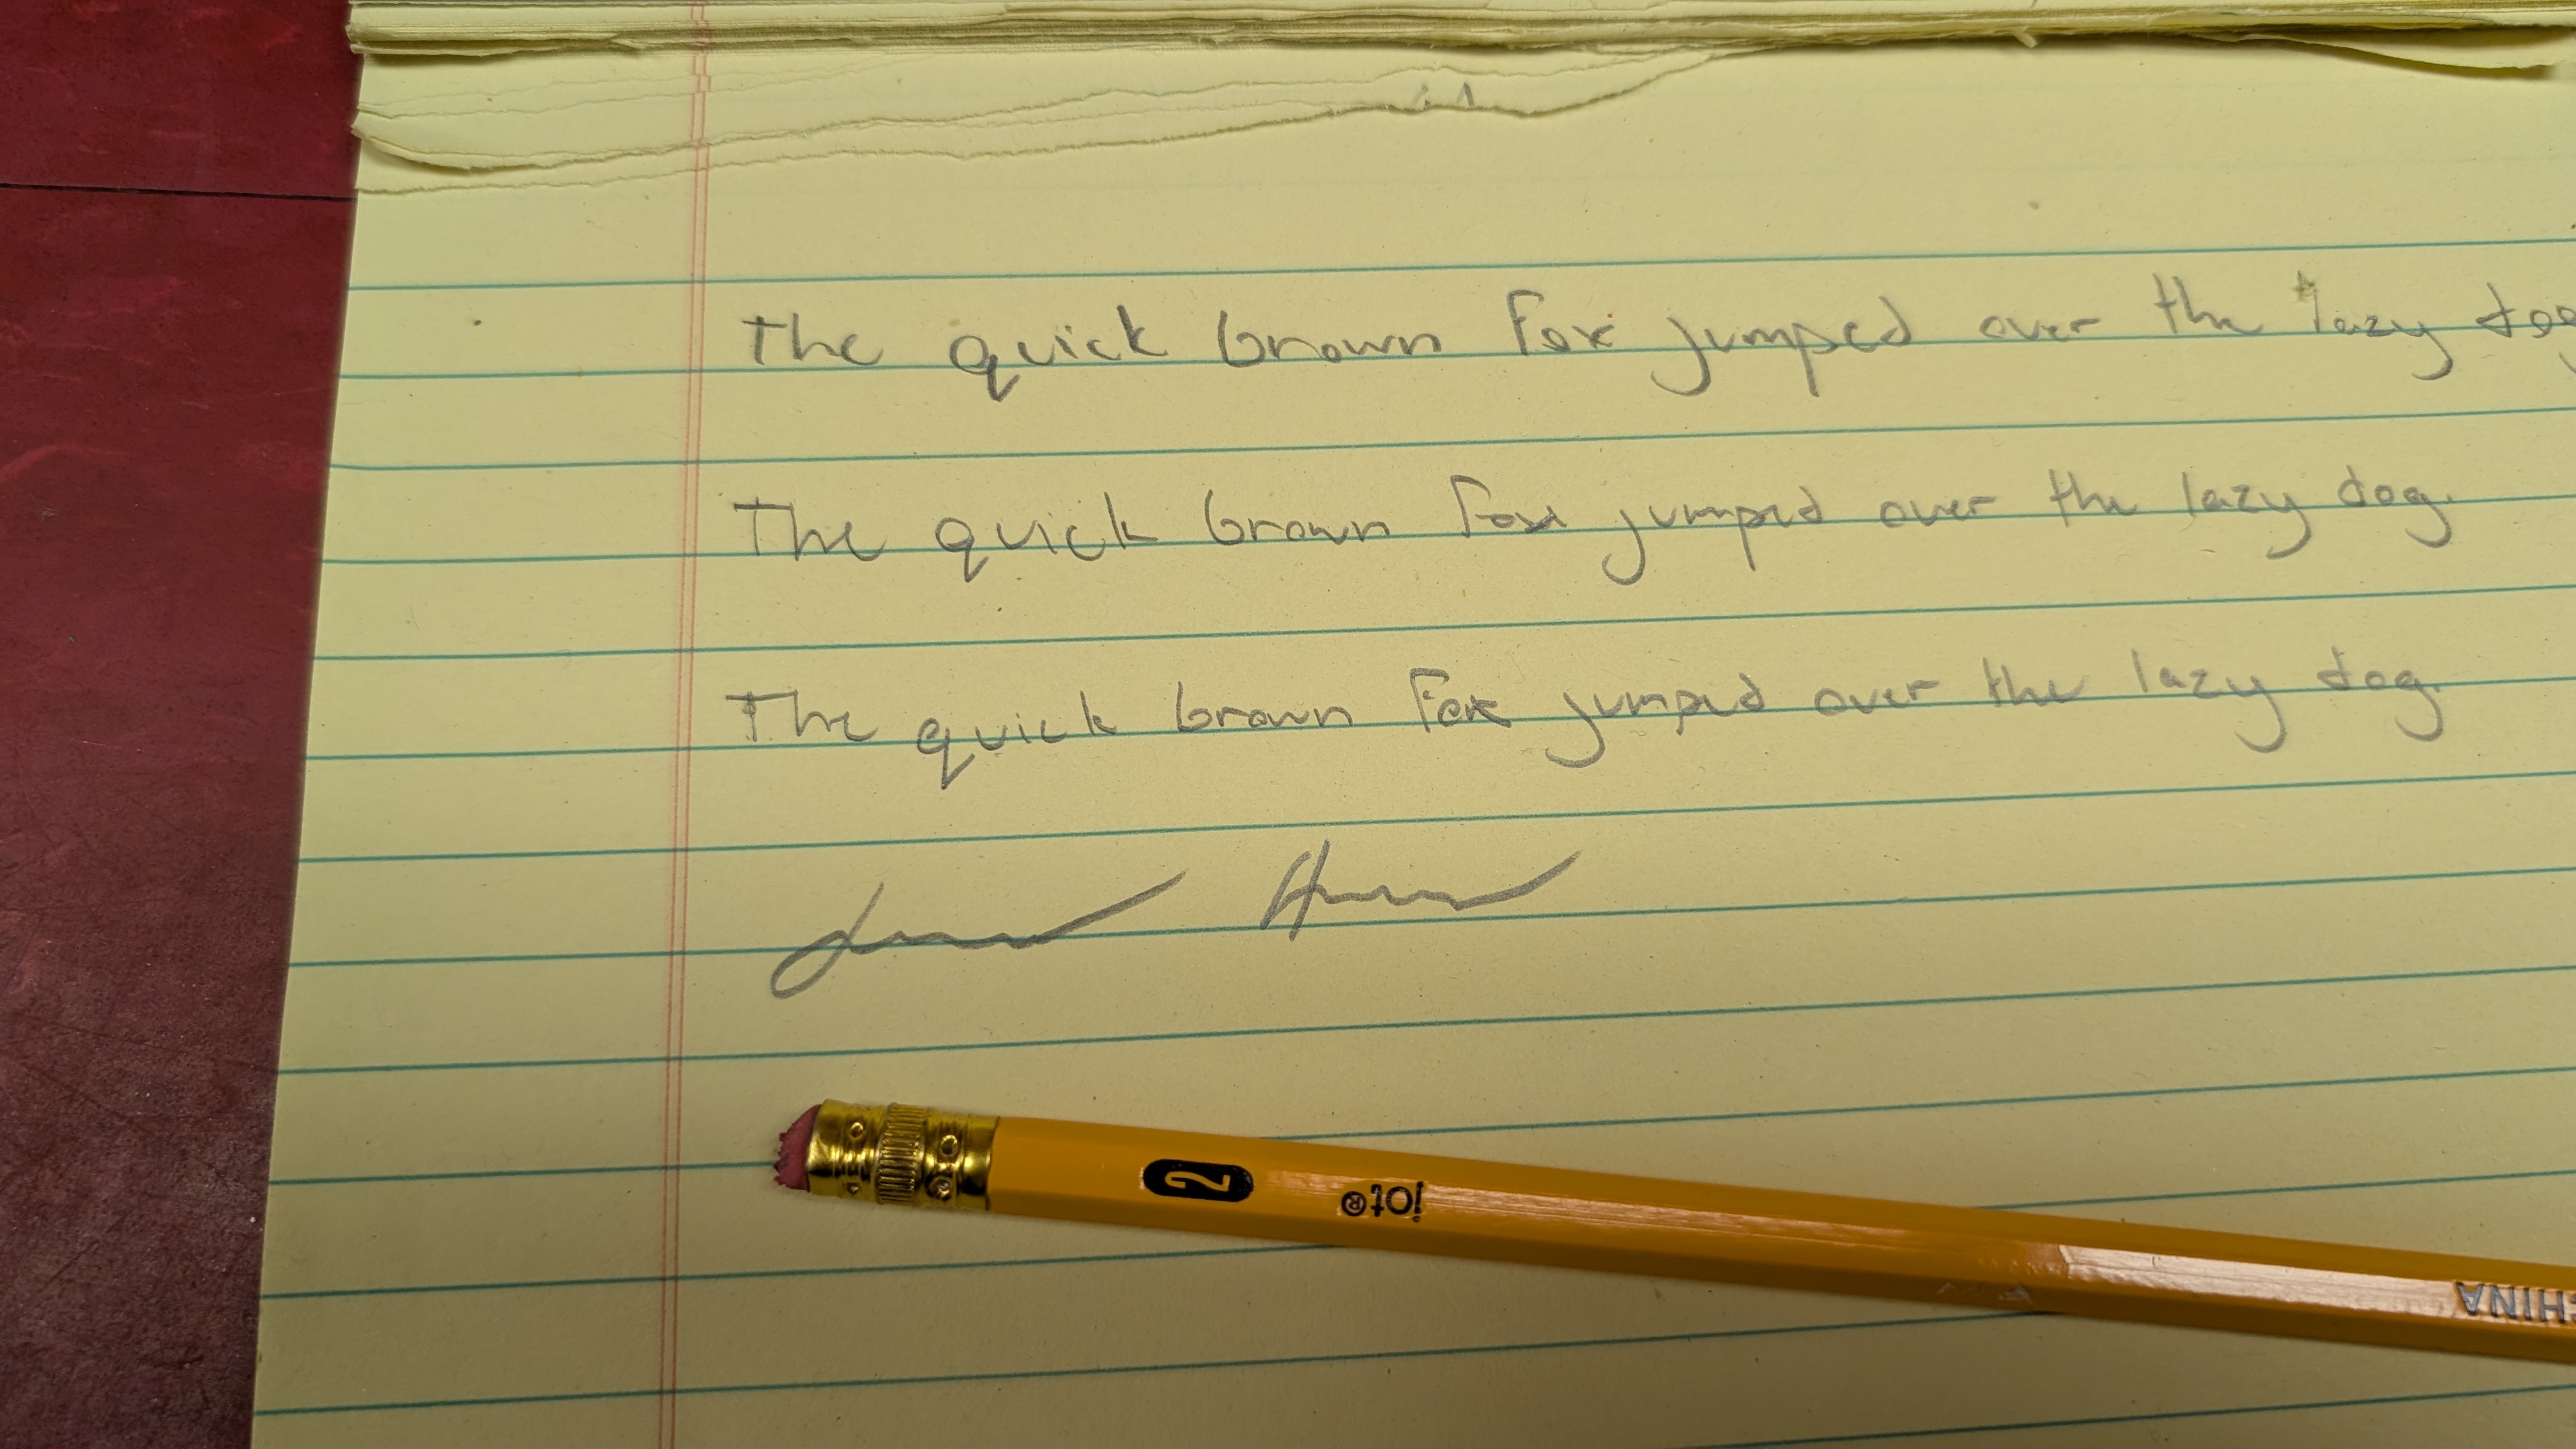 The quick brown fox jumped over the lazy dog
The quick brown fox jumped over the lazy dog.
The quick brown fox jumped over the lazy dog.
2 jot®
CHINA